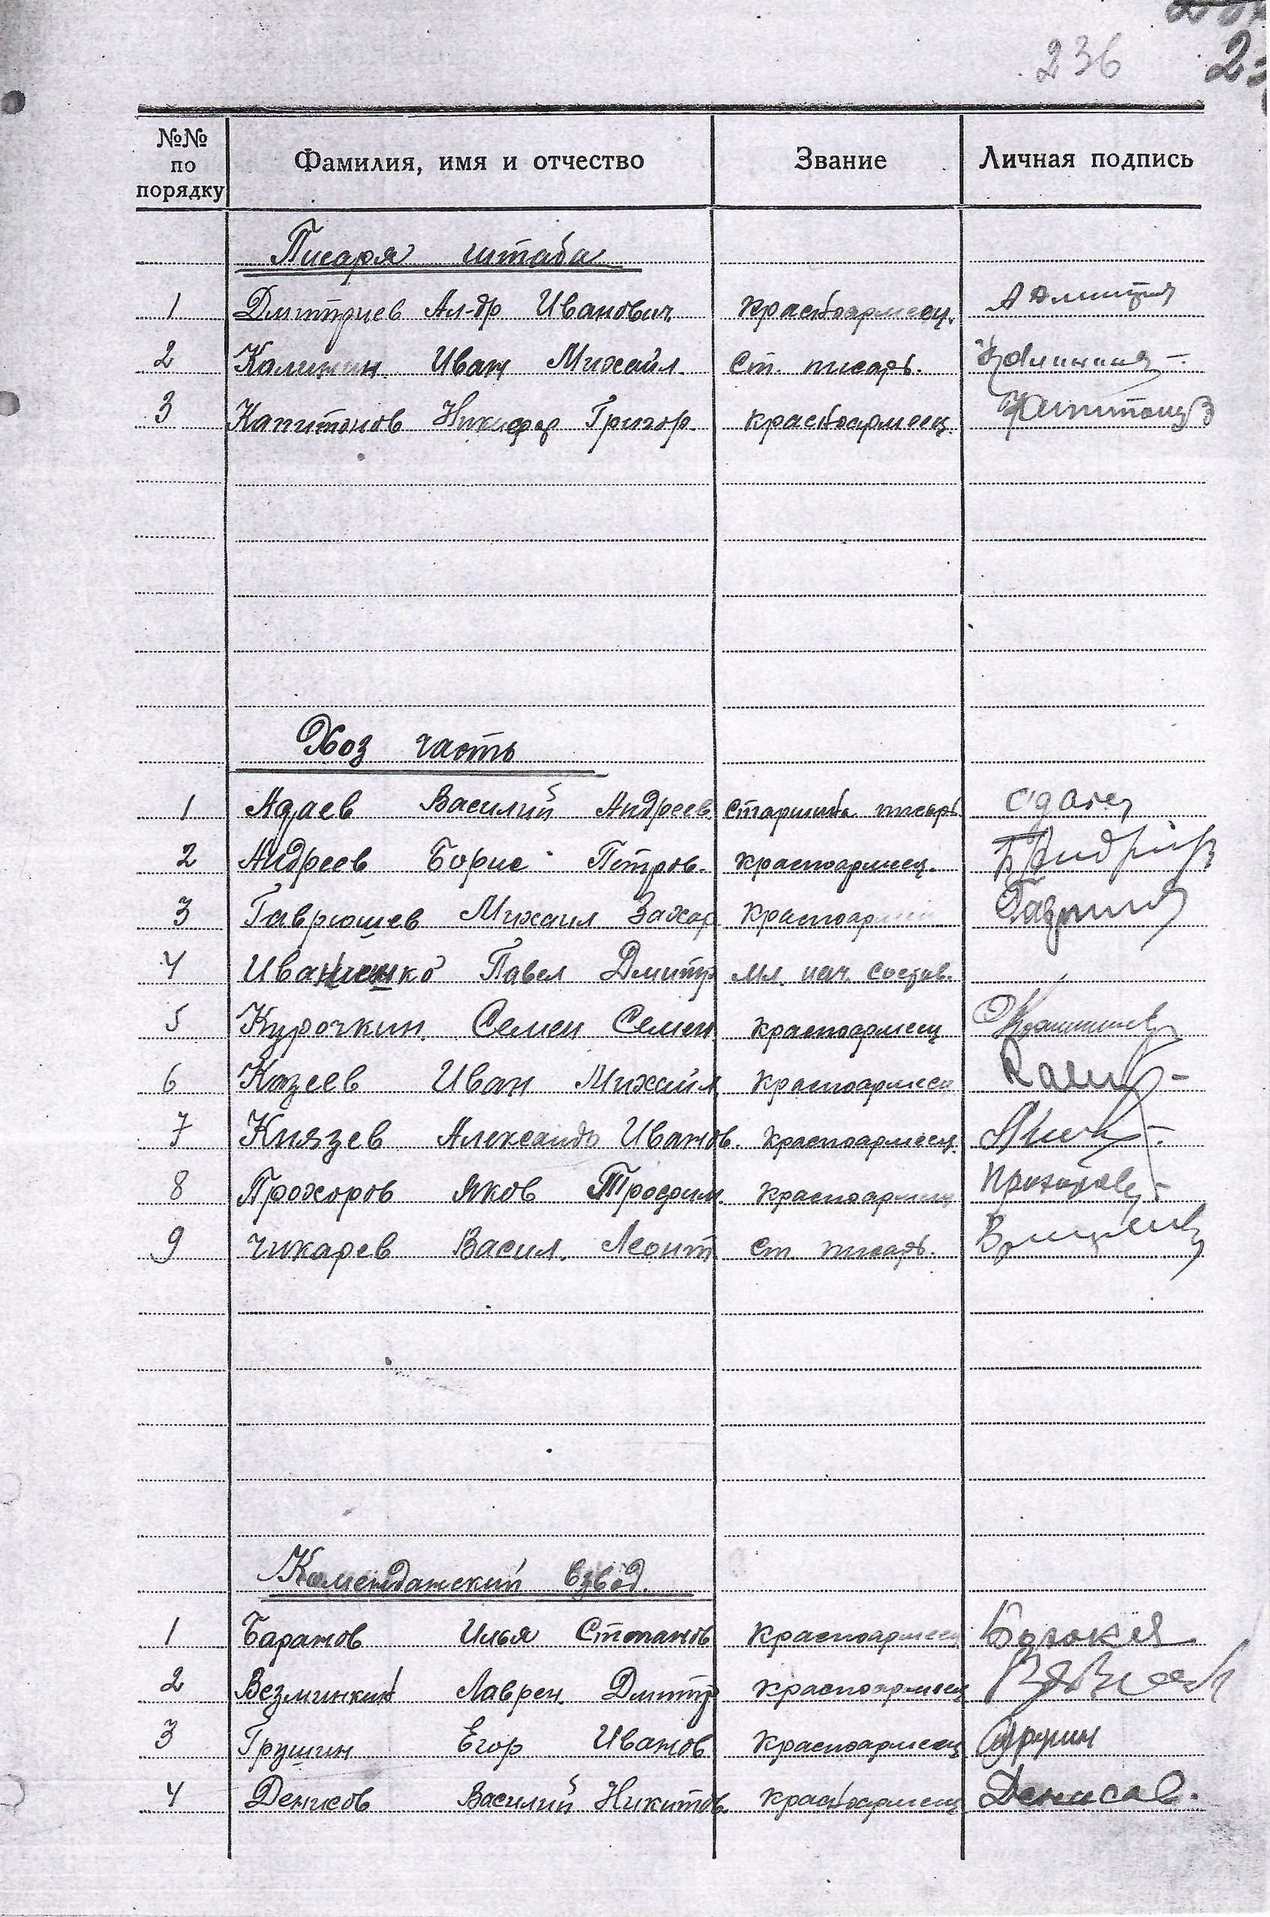 236
№№ по порядку Фамилия, имя и отчество Звание Личная подпись
Писаря штаба
1 Дмитриев Ал-др Иванович Красноармеец.
2 Калинин Иван Михайл. Ст. писарь.
3 Капитонов Никифор Григор Красноармеец.
Хоз часть
1 Адаев Василий Андреев Старшина писарь
2 Андреев Борис Петров. Красноармеец.
3 Гаврюшев Михаил Захар Красноармеец
4 Павел Дмитр Мл. нач. состав.
5 Курочкин Семен Семен Красноармеец
6 Казеев Иван Михайл Красноармеец
7 Князев Александр Иванов. Красноармеец.
8 Прохоров Яков Трофим. Красноармеец
9 Чикарев Васил. Леонт Ст. писарь.
Комендатский взвод.
1 Баранов Илья Степанов Красноармеец
2 Везминкин Лаврен. Дмитр Красноармеец
3 Грушин Егор Иванов Красноармеец Грушин
4 Денисов Василий Никитов. Красноармеец Денисов.